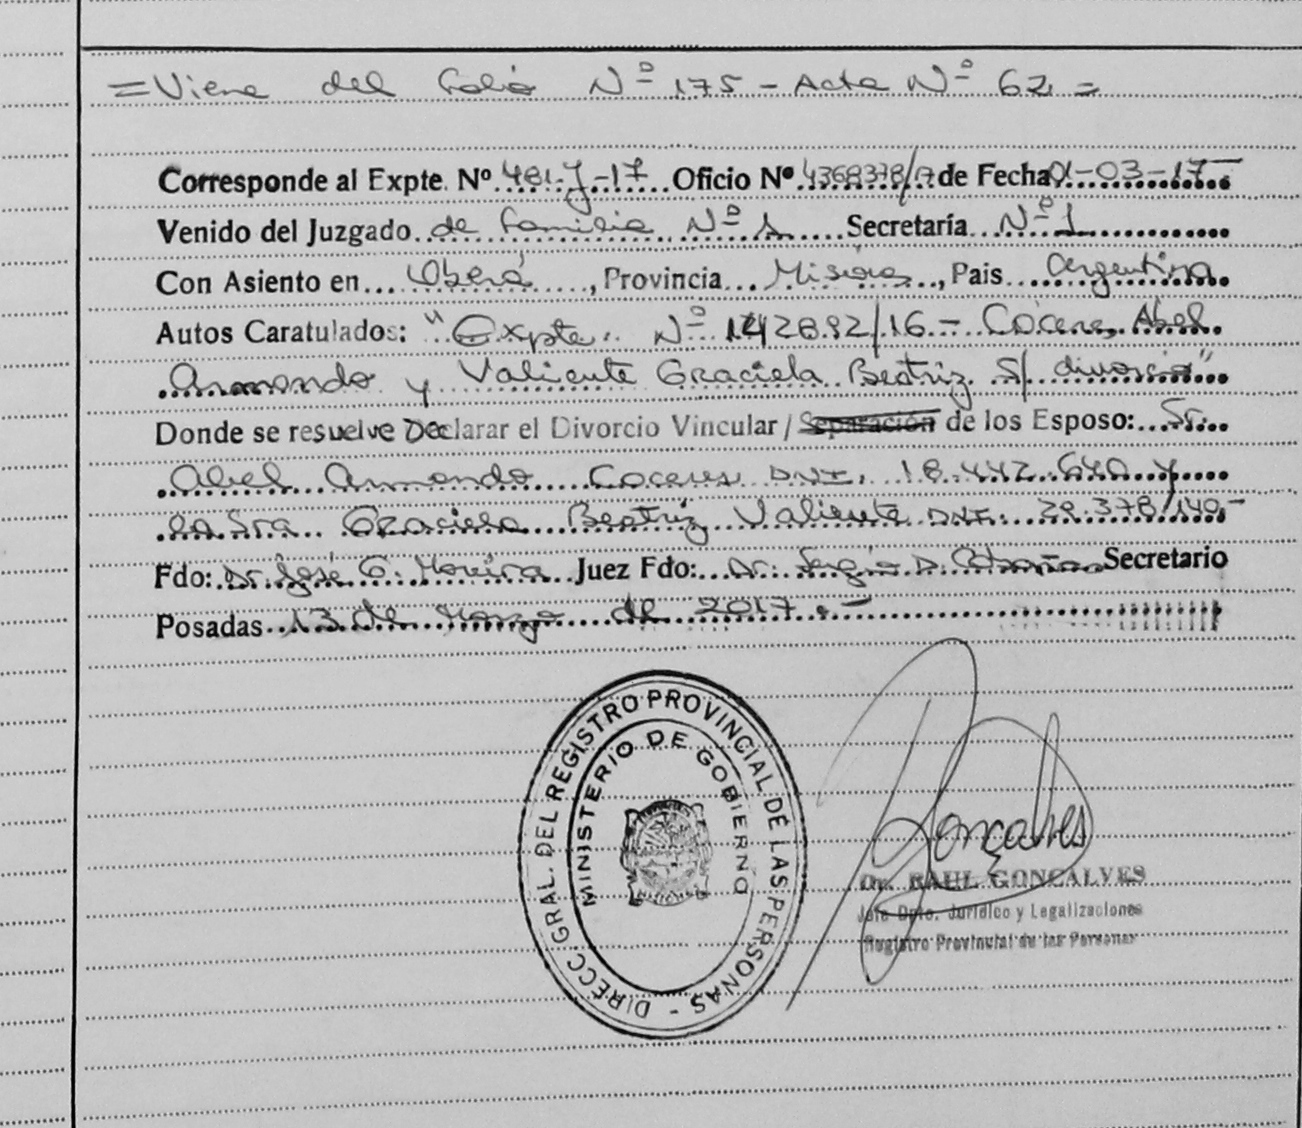 = Viene del Folio Nº 175 - Acta Nº 62 =
Corresponde al Expte. Nº 481-J-17 Oficio Nº 4368378/17 de Fecha 01-03-17-
Venido del Juzgado de Familia Nº 1 Secretaría Nº 1
Con Asiento en Oberá, Provincia Misiones, Pais Argentina
Autos Caratulados: "Expte. Nº 142892/16 - Coceres, Abel
Armando y Valiente Graciela Beatriz S/ divorcio"
Donde se resuelve Declarar el Divorcio Vincular / Separación de los Esposo: Sr.
Abel Armando Coceres DNI. 18.442.640 y
la Sra Graciela Beatriz Valiente DNI. 29.378.140-
Fdo: Dr. José G. Moreira Juez Fdo: Dr. Sergio D. Secretario
Posadas 13 de Marzo de 2017.-
DIRECC. GRAL. DEL REGISTRO PROVINCIAL DE LAS PERSONAS -
MINISTERIO DE GOBIERNO
Gonçalves
Dr. RAUL GONCALVES
Jefe Dpto. Jurídico y Legalizaciones
Registro Provincial de las Personas